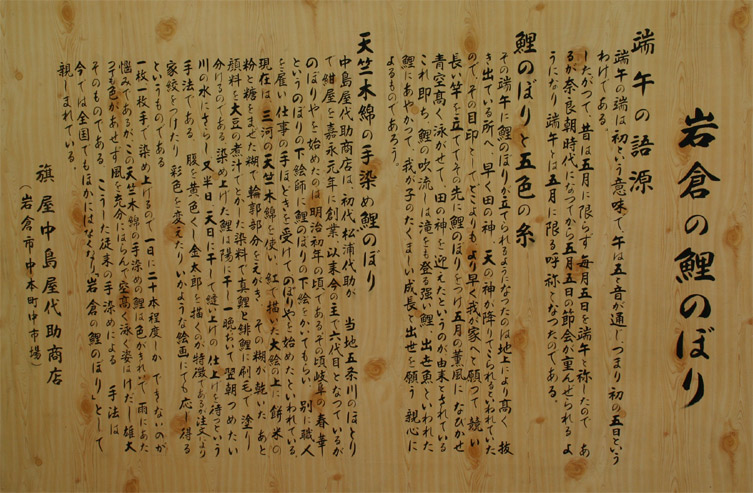 岩倉の鯉のぼり
端午の語源
端午の端は初という意味で、午は五と音が通じ、つまり初の五日という
わけである。
したがつて、昔は五月に限らず毎月五日を端午と称したので あ
るが奈良朝時代になつてから五月五日の節会が重んぜられるよ
うになり端午とは五月に限る呼称となつたのである。
鯉のぼりと五色の糸
その端午に鯉のぼりが立てられるようなつたのは地上により高く 抜
き出ている所へ、早く田の神、天の神が降りてこられるといわれていた
ので、その目印としてどこよりもより早く我が家へと願つて競い
長い竿を立ててその先に鯉のぼりをつけ五月の薫風に なびかせ
青空高く泳がせて、田の神を迎えたというのが由来とされている
これ即ち、鯉の吹流しは滝をも登る強い鯉、出世魚といわれた
鯉にあやかつて、我が子のたくましい成長と出世を願う 親心に
よるものであろう。
天竺木綿の手染め鯉のぼり
中島屋代助商店は、初代松浦代助が 当地五条川のほとり
で紺屋を嘉永元年に創業 以来今の主で六代目となつているが
のぼりやを始めたのは明治初年の頃であるその頃岐阜の春華
というのぼりの下絵師に鯉のぼりの下絵をかいてもらい 別に職人
を雇い仕事の手ほどきを受けてのぼりやを始めたといわれている。
現在は、三河の天竺木綿を使い、紅で描いた大絵の上に 餅米の
粉と糖をまぜた糊で輪郭部分をえがき、その糊が乾いた あと
顔料を大豆の煮汁でとかした染料で真鯉と緋鯉に刷毛で 塗り
分けるのである 染め上げた鯉は陽に干し一晩おいて翌朝つめたい
川の水にさらし 又半日 天日に干して縫い上げの 仕上を待つという
手法である 腹を黄色くし金太郎を描くのが特徴であるが注文により
家紋をつけたり 彩色を変えたりいかような絵画にても応じ得る
というものである
一枚一枚手で染め上げるので 一日に二十本程度しか できないのが
悩みであるが、この天竺木綿の手染めの鯉は色がきれいで 雨にあた
つても色があせず風を充分にはらんで空高く泳ぐ姿はけだし雄大
そのものである こうした従来の手染めによる 手法は
今では全国でもほかにはなくなり"岩倉の鯉のぼり"として
親しまれている。
旗屋中島屋代助商店
（岩倉市中本町中市場）